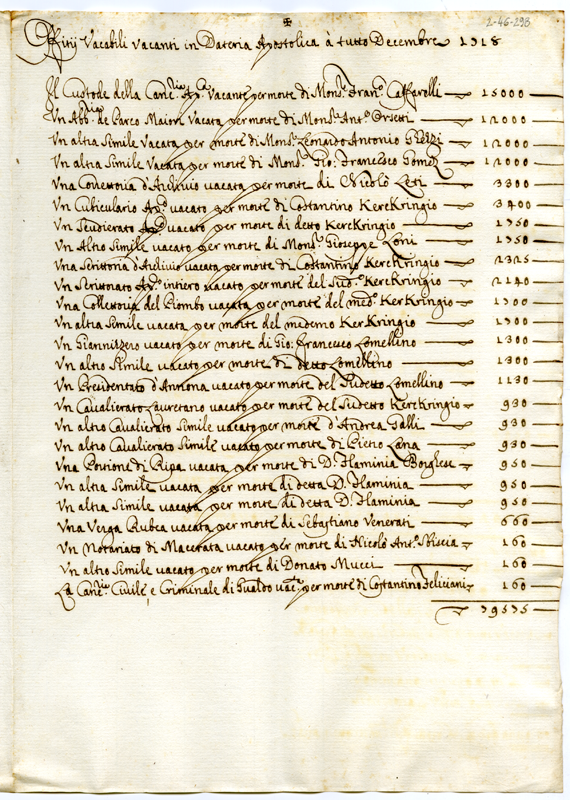 ✠
2-46-293
Offitij Vacabili Vacanti in Dataria Apostolica à tutto Decembre 1718
Il Custode della Canc.ria Ap.ca Vacante per morte di Mons.r Fran.co Caffarelli 15000
Un Abb.re de Parco Maiori Vacata per morte di Mons.r Ant.o Orsetti 12000
Un altra Simile Vacata per morte di Mons.r Leonardo Antonio 12000
Un altra Simile Vacata per morte di Mons.r Gio: Francesco Gomez 12000
Una Correttoria d'Archivio vacata per morte di Nicolò Leti 3300
Un Cubiculario Ap.co vacato per morte di Costantino KercKringio 3400
Un Scudierato Ap.co vacato per morte di detto KercKringio 1750
Un Altro Simile vacato per morte di Mons.r Gioseppe 1750
Una Scrittoria d'Archivio vacata per morte di Costantino KercKringio 2325
Un Scrittorato Ap.co intiero vacato per morte del Sud.o KercKringio 2140
Una Collettoria del Piombo vacata per morte del med.o KerKringio 1700
Un altra Simile vacata per morte del medemo KerKringio 1700
Un Giannizzero vacato per morte di Gio: Francesco Lomellino 1300
Un altro Simile vacato per morte di detto Lomellino 1300
Un Presidentato d'Annona vacato per morte del Sudetto Lomellino 1130
Un Cavalierato Lauretano vacato per morte del Sudetto KercKringio 930
Un altro Cavalierato Simile vacato per morte d'Andrea Galli 930
Un altro Cavalierato Simile vacato per morte di Pietro Lana 930
Una Portione di Ripa vacata per morte di D. Flaminia Borghese 950
Un altra Simile vacata per morte di detta D. Flaminia 950
Un altra Simile vacata per morte di detta D. Flaminia 950
Una Verga Rubea vacata per morte di Sebastiano Venerati 660
Un Notariato di Macerata vacato per morte di Nicolò Ant.o 160
Un altro Simile vacato per morte di Donato Mucci 160
La Canc.ria Civile e Criminale di Gualdo vac.ta per morte di Costantino Feliciani 160
79575